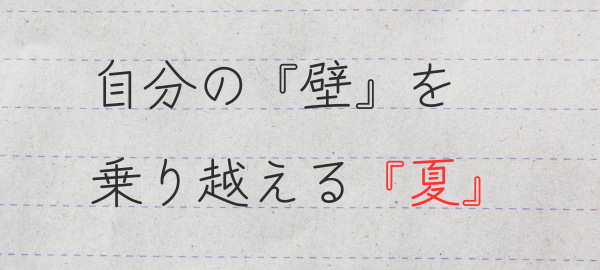 自分の『壁』を
乗り越える『夏』